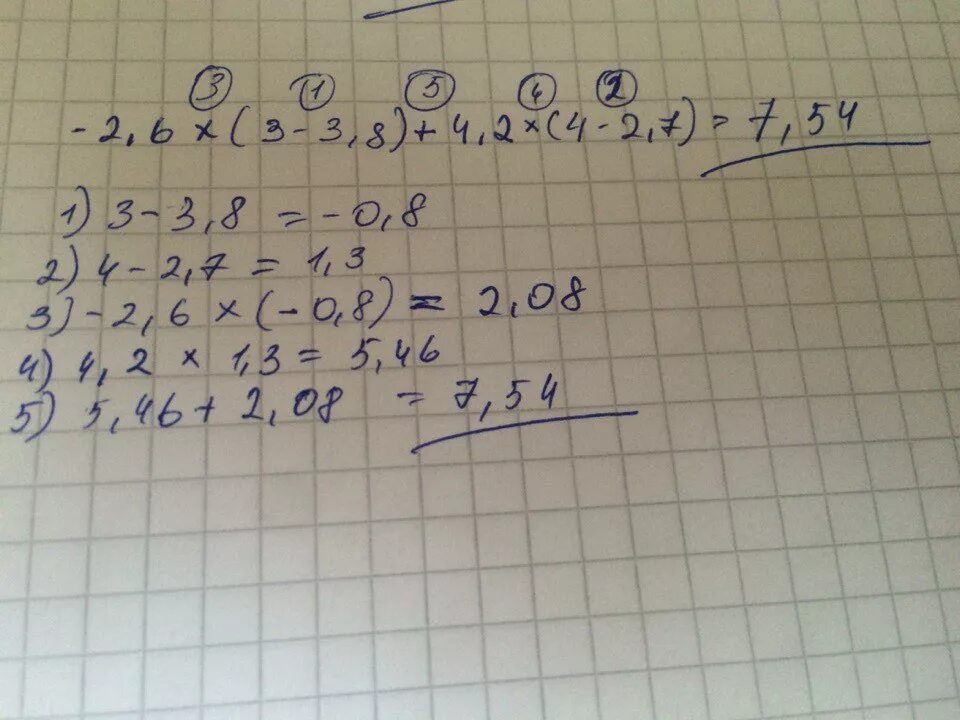 ③ ① ⑤ ④ ②
-2,6 × (3-3,8)+4,2×(4-2,7) = 7,54
1) 3-3,8 = -0,8
2) 4-2,7 = 1,3
3) -2,6 × (-0,8) = 2,08
4) 4,2 × 1,3 = 5,46
5) 5,46+2,08 = 7,54